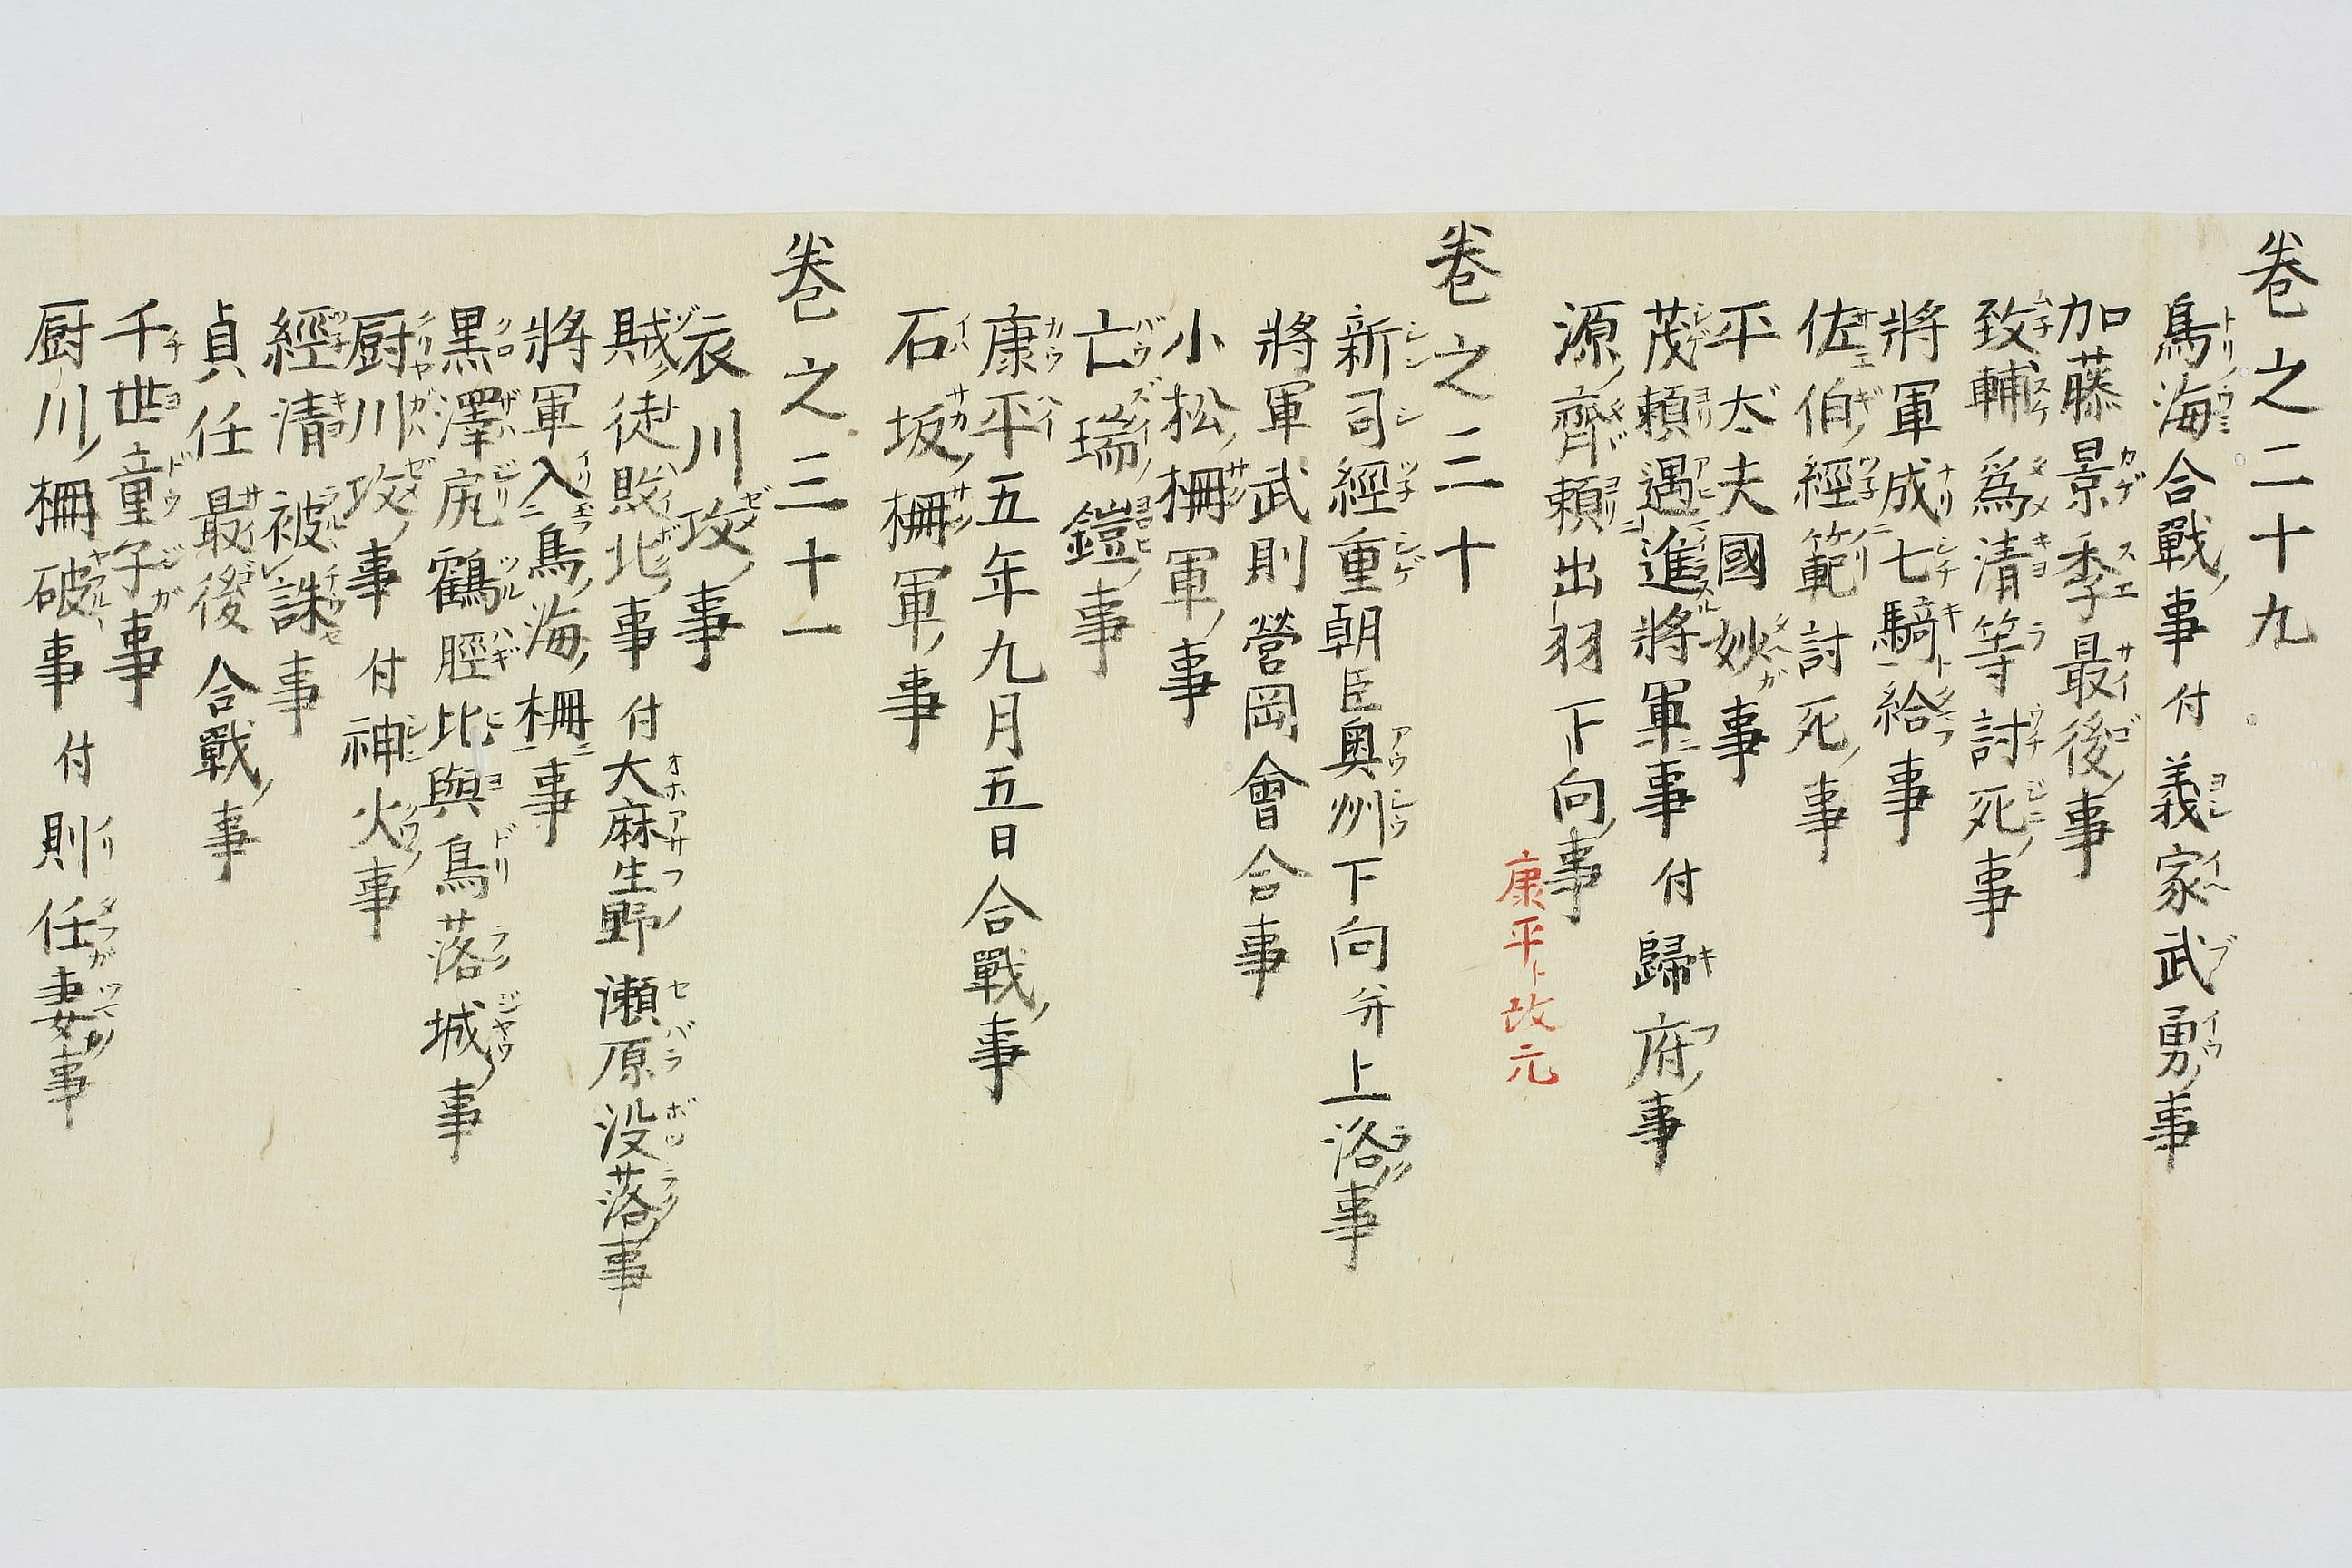 巻之二十九
鳥海合戰ノ事 付 義家武勇ノ事
加藤景季最後ノ事
致輔爲清等討死ノ事
將軍成七騎給事
佐伯ノ經範討死ノ事
平大夫國妙ガ事
茂頼遇進將軍事 付 歸府ノ事
源ノ齊頼出羽下向ノ事
康平ト改元
巻之三十
新司經重朝臣奥州下向并上洛ノ事
將軍武則營岡會合事
小松ノ柵軍ノ事
亡瑞ノ鎧ノ事
康平五年九月五日合戰ノ事
石坂ノ柵軍ノ事
巻之三十一
衣川攻ノ事
賊徒敗北ノ事 付 大麻生野瀬原没落ノ事
將軍入鳥ノ海ノ柵事
黒澤尻鶴脛比與鳥落城ノ事
厨川攻ノ事 付 神火ノ事
經清被レ誅事
貞任最後合戰ノ事
千世童子ガ事
厨川ノ柵破事 付 則任ガ妻ノ事